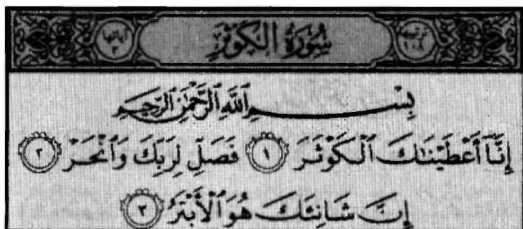 ترتيبها ١٠٨ سُورَةُ الكَوْثَرِ آياتها ٣
بِسْمِ اللَّهِ الرَّحْمَٰنِ الرَّحِيمِ
إِنَّآ أَعْطَيْنَٰكَ ٱلْكَوْثَرَ ١ فَصَلِّ لِرَبِّكَ وَٱنْحَرْ ٢
إِنَّ شَانِئَكَ هُوَ ٱلْأَبْتَرُ ٣